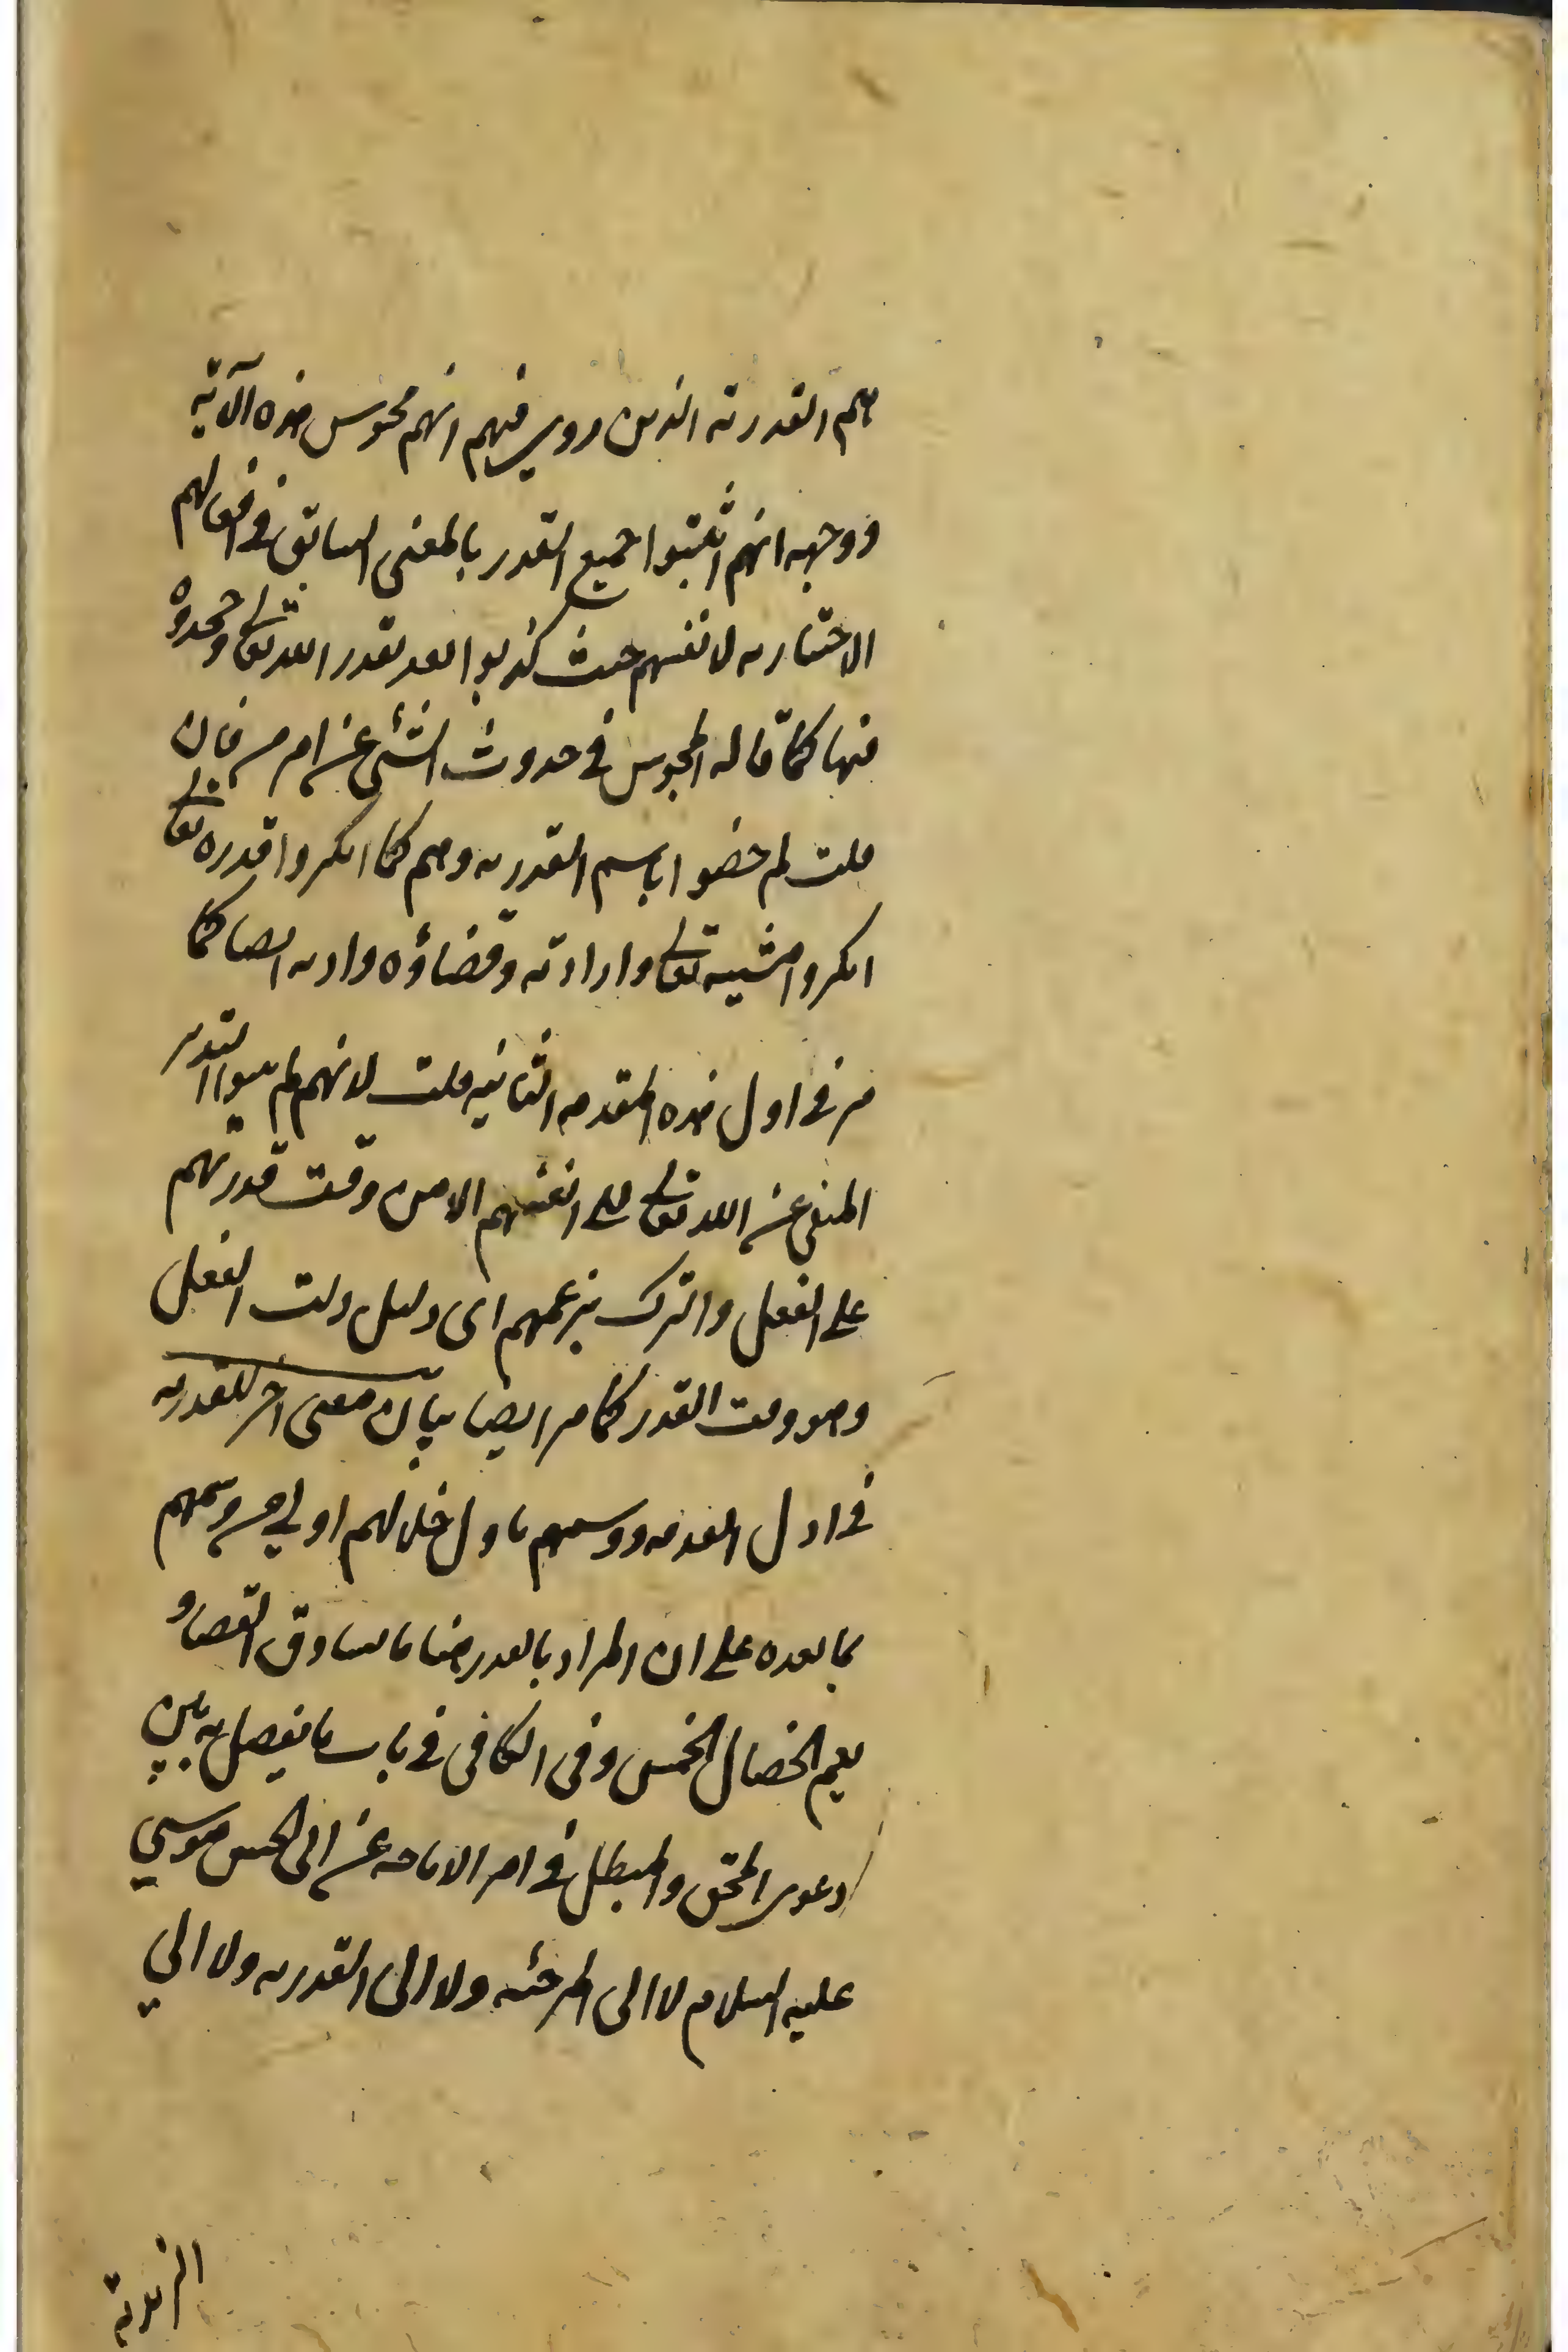 هم القدرية الذين روي فيهم انهم مجوس هذه الآية
ووجهه انهم اثبتوا جميع القدر بالمعنى السابق في افعالهم
الاختيارية لانفسهم حيث كذبوا بقدر الله تعالى وجحدوه
فيها كما قاله المجوس في حدوث الشئ عن اهرمن فان
قلت لم خصوا باسم القدرية وهم كما انكروا قدره تعالى
انكروا مشيته تعالى وارادته وقضاؤه واذنه ايضا كما
مر في اول هذه المقدمة الثانية قلت لانهم لم يثبتوا القدر
المنفي عن الله تعالى لانفسهم الا من وقت قدرتهم
على الفعل والترك بزعمهم اى دليل وقت الفعل
وهو وقت القدر كما مر ايضا بيان معنى آخر للقدرية
في اول المقدمة ووسمهم باول خلالهم اولى من وسمهم
بما بعده على ان المراد بالقدر هنا ما يساوق القضاء و
يعم الخصال الخمس وفى الكافى في باب ما يفصل به بين
دعوى المحق والمبطل في امر الامامة عن ابى الحسن موسى
عليه السلام لا الى المرجئة ولا الى القدرية ولا الى
الزيدية